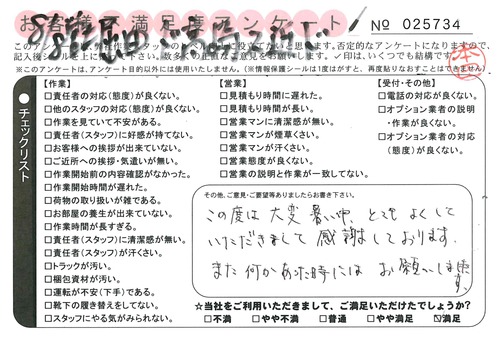 お客様不満足度アンケート
№ 025734
このアンケートは、弊社作業スタッフのレベル向上に役立てたいと思います。否定的なアンケートになりますので、
記入後シールを上にして、多数の正直なご意見をお願いします。✓印は、いくつでも結構です。
※このアンケートは、アンケート目的以外には使用いたしません。(※情報保護シールは1度はがすと、再度貼りなおすことはできません。)
チェックリスト
【作業】
□責任者の対応(態度)が良くない。
□他のスタッフの対応(態度)が良くない。
□作業を見ていて不安がある。
□責任者(スタッフ)に好感が持てない。
□お客様への挨拶が出来ていない。
□ご近所への挨拶・気遣いが無い。
□作業開始前の内容確認がなかった。
□作業開始時間が遅れた。
□荷物の取り扱いが雑である。
□お部屋の養生が出来ていない。
□作業時間が長すぎる。
□責任者(スタッフ)に清潔感が無い。
□責任者(スタッフ)が汗くさい。
□トラックが汚い。
□梱包資材が汚い。
□運転が不安(下手)である。
□靴下の履き替えをしてない。
□スタッフにやる気がみられない。
【営業】
□見積もり時間に遅れた。
□見積もり時間が長い。
□営業マンに清潔感が無い。
□営業マンが煙草くさい。
□営業マンが汗くさい。
□営業態度が良くない。
□営業の説明と作業が一致してない。
【受付・その他】
□電話の対応が良くない。
□オプション業者の説明
・作業が良くない。
□オプション業者の対応
(態度)が良くない。
その他、ご意見・ご要望等ありましたらお書き下さい。
この度は大変暑い中、とてもよくして
いただきまして感謝しております。
また何かあった時には お願いします。
☆当社をご利用いただきまして、ご満足いただけたでしょうか?
□不満 □やや不満 □普通 □やや満足 ☑満足